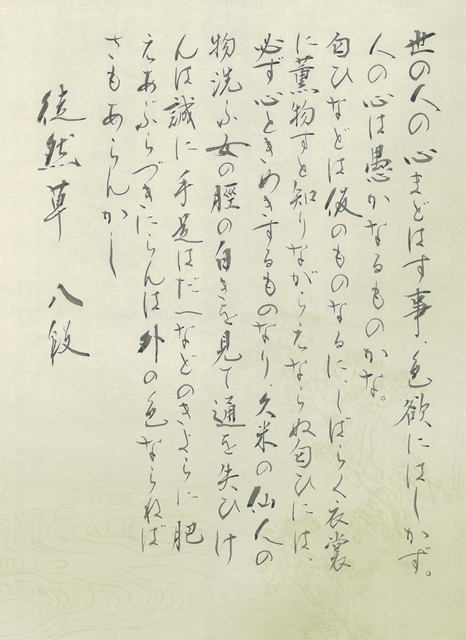 世の人の心まどはす事、色欲にはしかず。
人の心は愚かなるものかな。
匂ひなどは仮のものなるに、しばらく衣裳
に薫物すと知りながらえならぬ匂ひには、
必ず心ときめきするものなり、久米の仙人の
物洗ふ女の脛の白きを見て通を失ひけ
んは誠に手足はだへなどのきよらに肥
えあぶらづきたらんは外の色ならねば
さもあらんかし
徒然草 八段